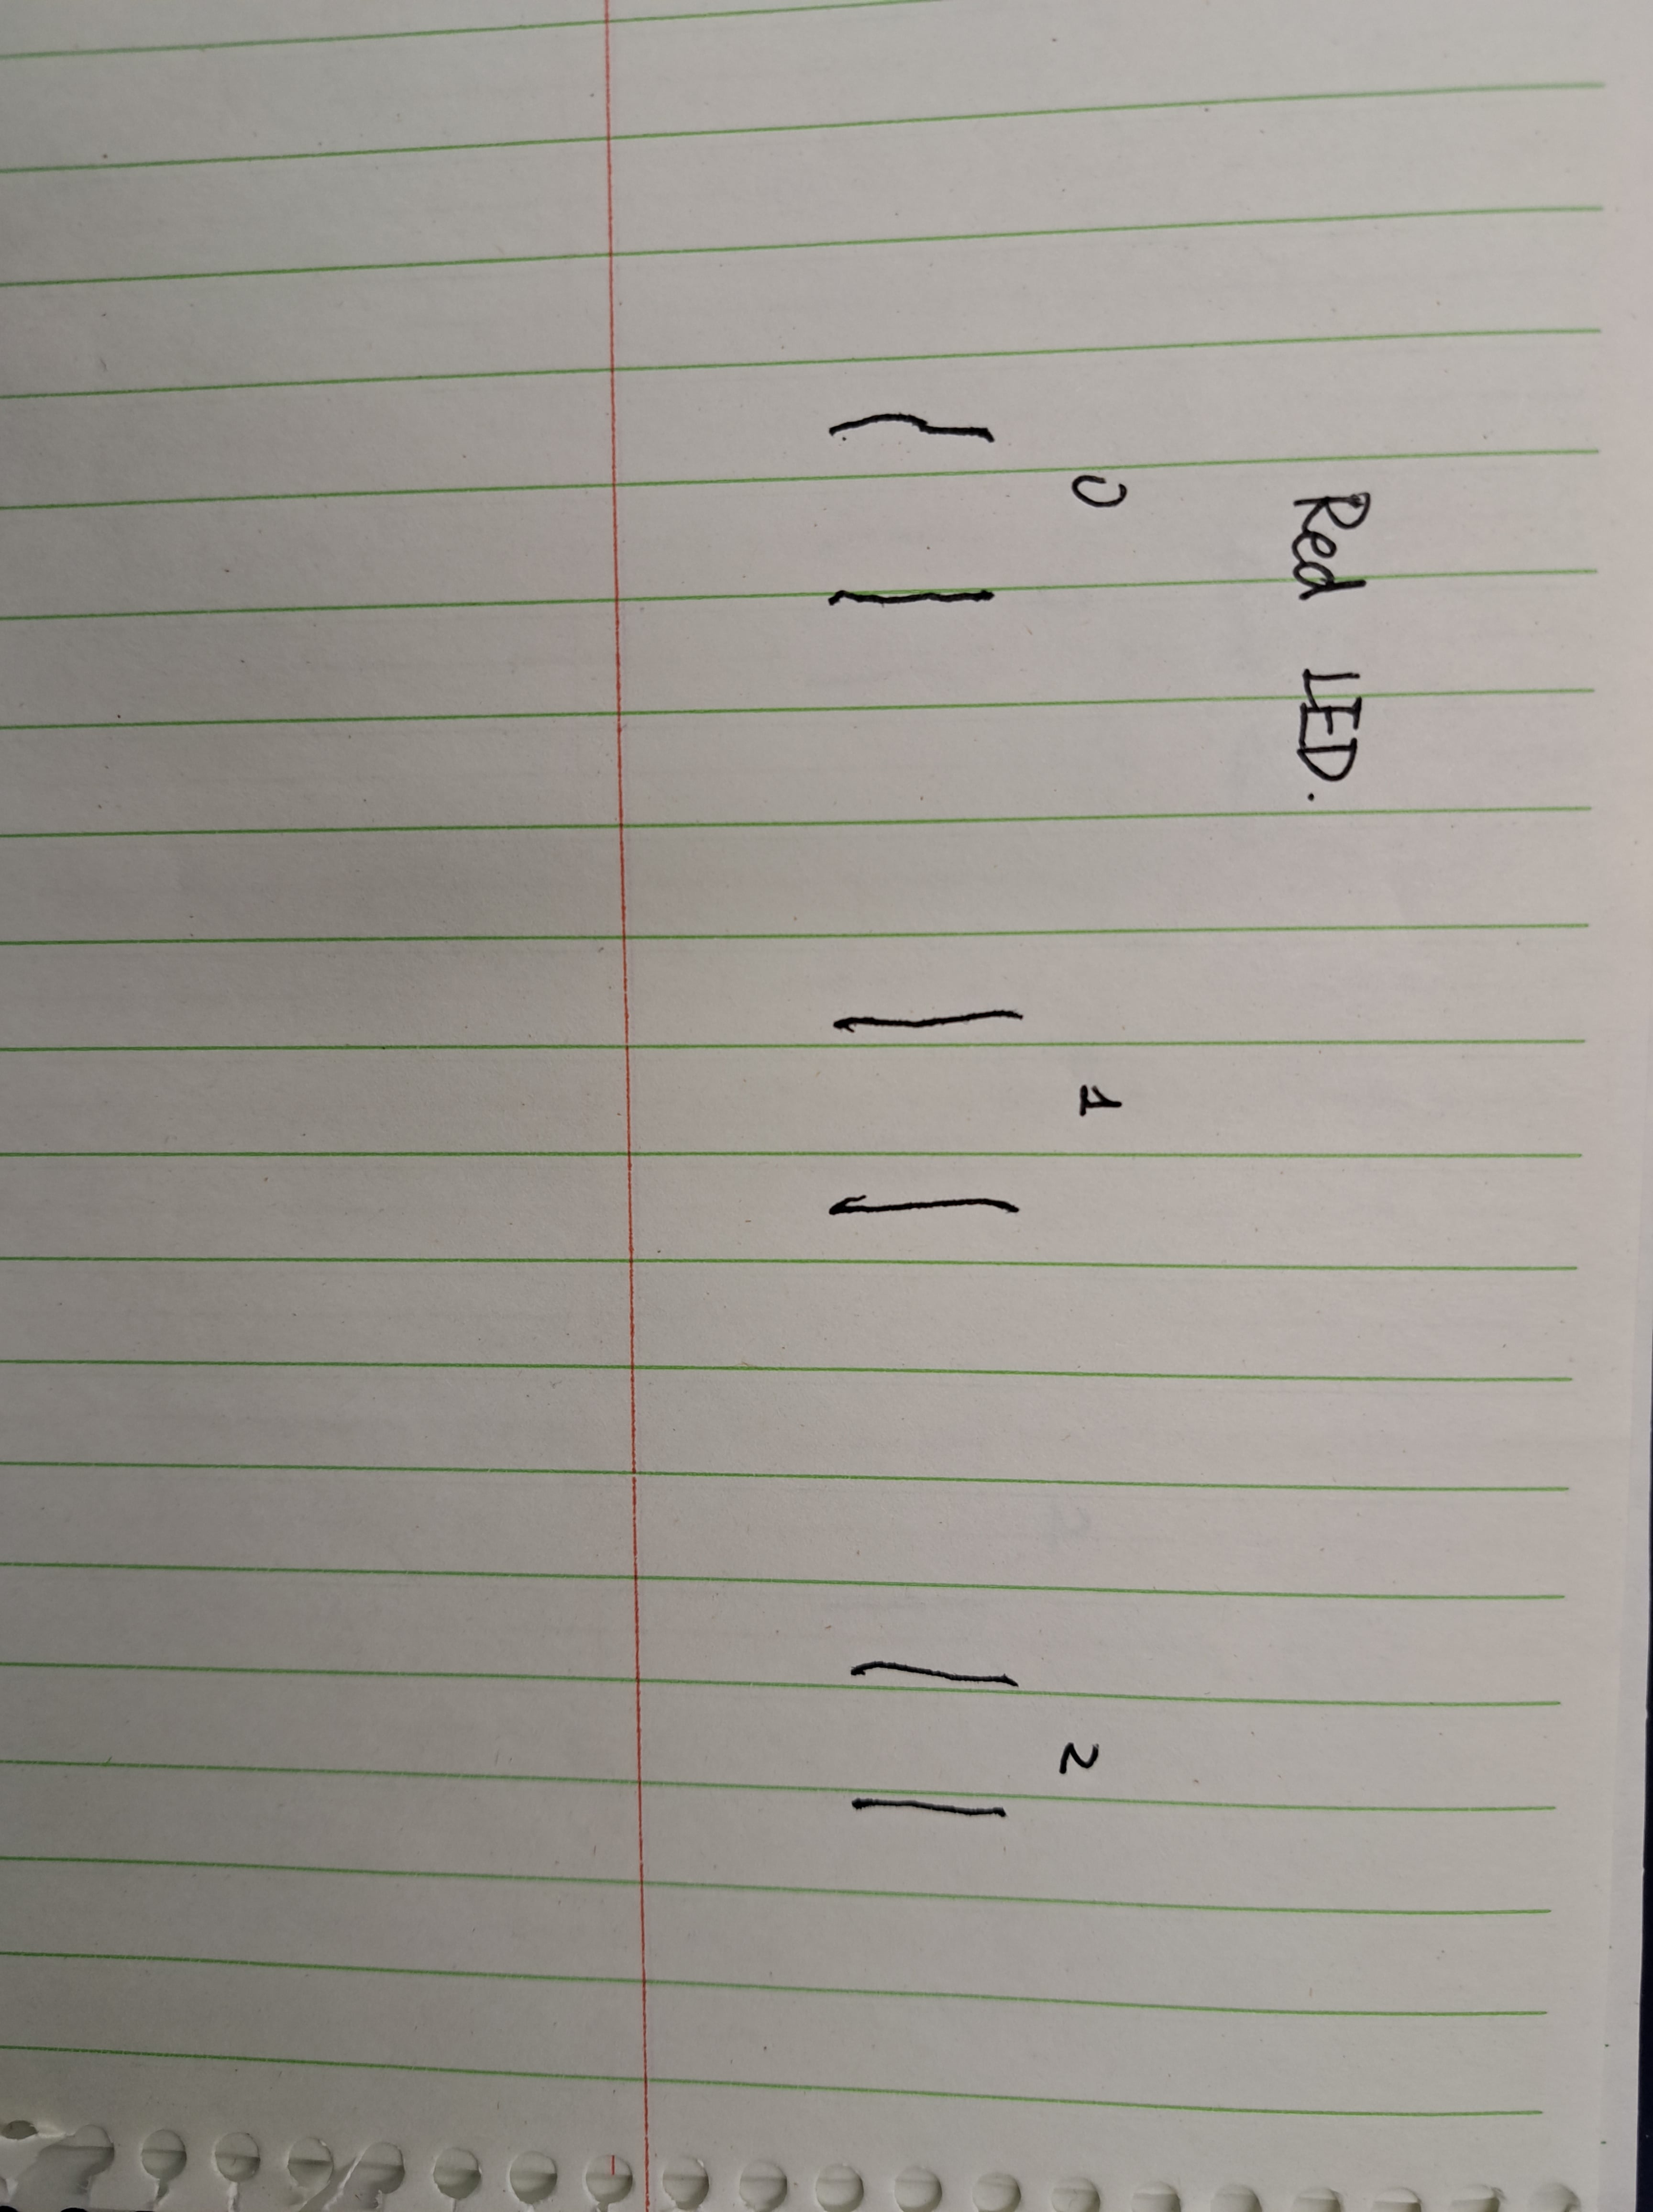 Red LED.
0 1 2